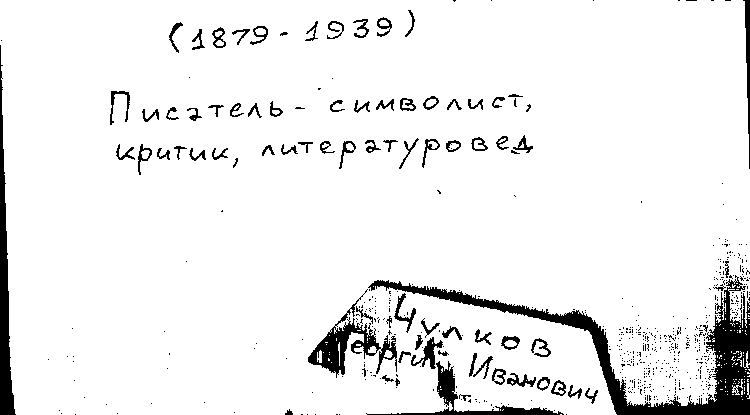 (1879 - 1939)
Писатель - символист,
критик, литературовед
Чулков
Георгий Иванович